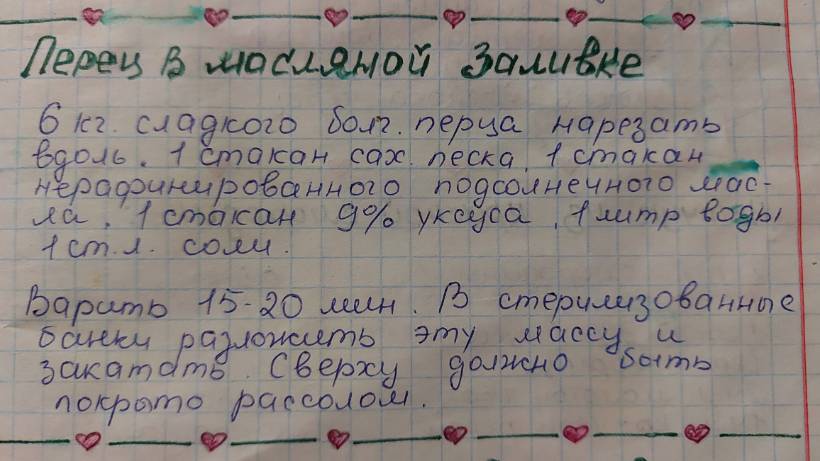 Перец в масляной заливке
6 кг. сладкого болг. перца нарезать
вдоль. 1 стакан сах. песка, 1 стакан
нерафинированного подсолнечного мас-
ла, 1 стакан 9% уксуса, 1 литр воды
1 ст.л. соли.
Варить 15-20 мин. В стерилизованные
банки разложить эту массу и
закатать. Сверху должно быть
покрыто рассолом.